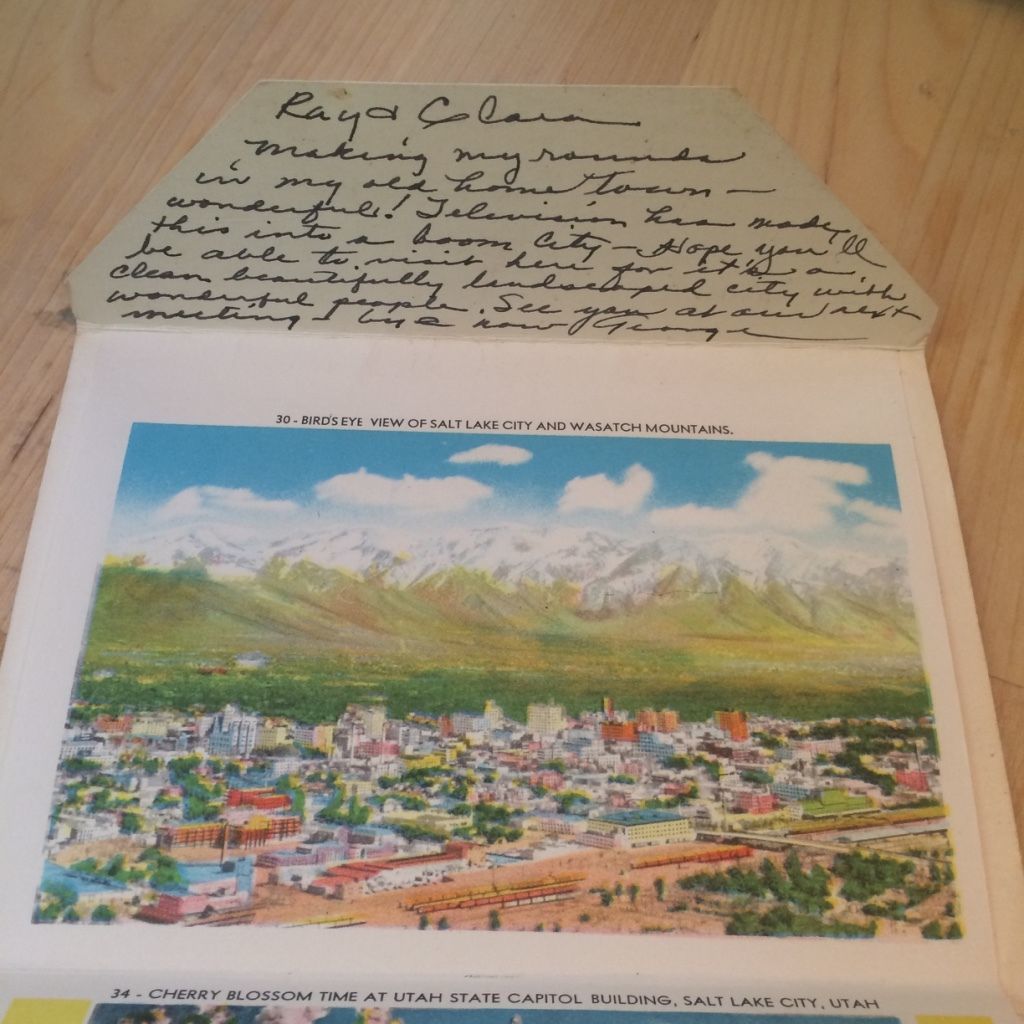 Ray & Clara
Making my rounds
in my old home town –
wonderful! Television has made
this into a boom city – Hope you'll
be able to visit here for it's a
clean beautifully landscaped city with
wonderful people. See you at our next
meeting – bye now George
30 - BIRD'S EYE VIEW OF SALT LAKE CITY AND WASATCH MOUNTAINS.
34 - CHERRY BLOSSOM TIME AT UTAH STATE CAPITOL BUILDING, SALT LAKE CITY, UTAH